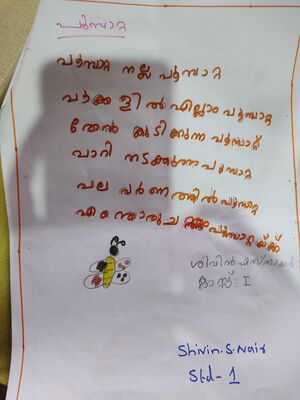 പൂമ്പാറ്റ
പൂമ്പാറ്റ നല്ല പൂമ്പാറ്റ
പൂക്കളിൽ എല്ലാം പൂമ്പാറ്റ
തേൻ കുടിക്കുന്ന പൂമ്പാറ്റ
പാറി നടക്കുന്ന പൂമ്പാറ്റ
പല വർണത്തിൽ പൂമ്പാറ്റ
എന്തൊരു ച പൂമ്പാറ്റയ്ക്ക്
ശിവിൻ എസ് നായർ
ക്ലാസ്സ് : I
Shivin.S.Nair
Std - 1